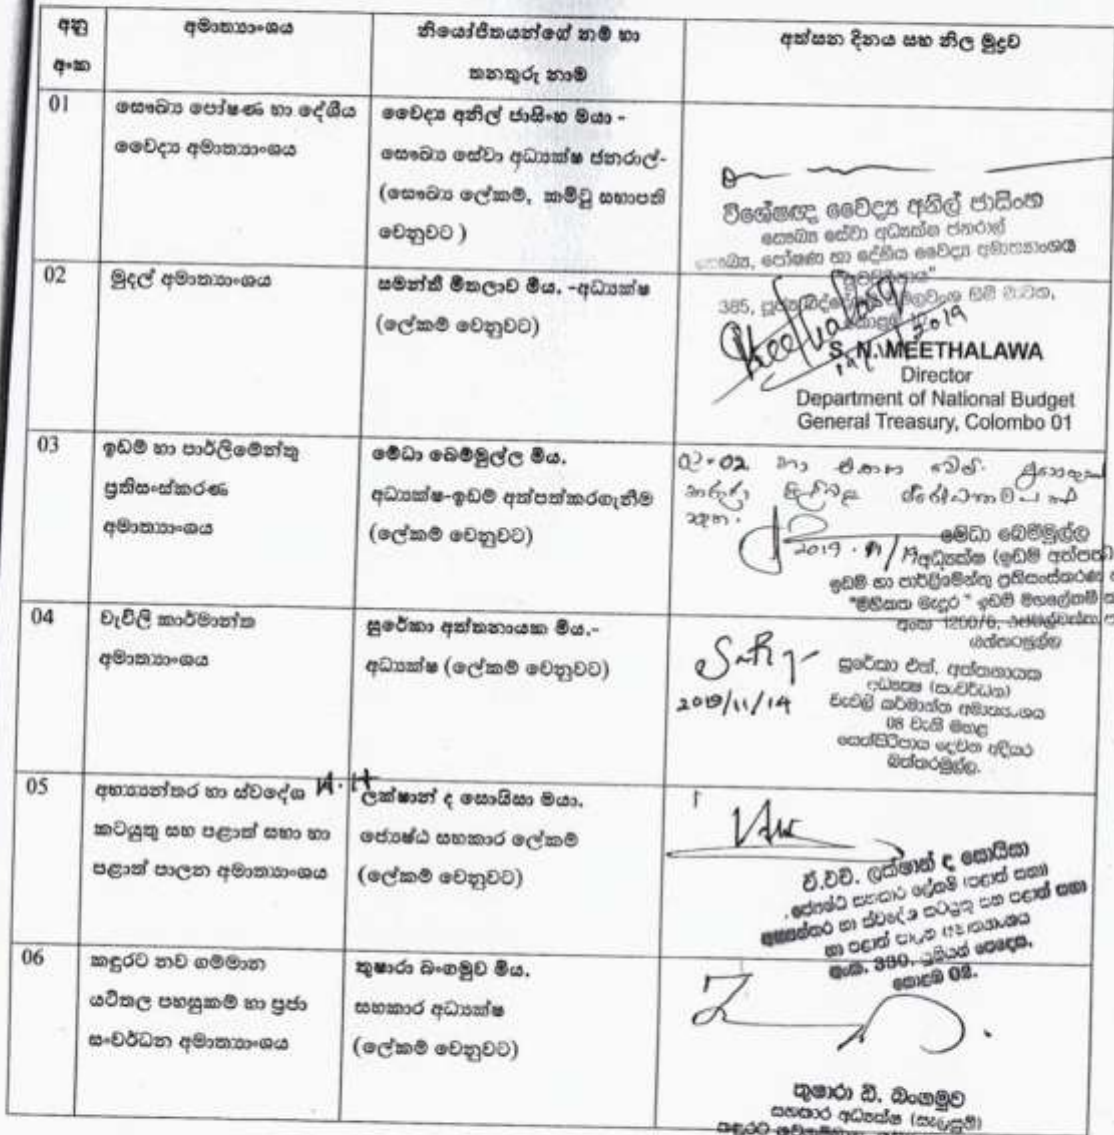 අනු
අංක
අමාත්‍යාංශය
නියෝජිතයන්ගේ නම් හා
තනතුරු නාම
අත්සන දිනය සහ නිල මුද්‍රාව
01
සෞඛ්‍ය පෝෂණ හා දේශීය
වෛද්‍ය අමාත්‍යාංශය
වෛද්‍ය අනිල් ජාසිංහ මයා -
සෞඛ්‍ය සේවා අධ්‍යක්ෂ ජනරාල්-
(සෞඛ්‍ය ලේකම්, කමිටු සභාපති
වෙනුවට )
විශේෂඥ වෛද්‍ය අනිල් ජාසිංහ
සෞඛ්‍ය සේවා අධ්‍යක්ෂ ජනරාල්
සෞඛ්‍ය, පෝෂණ හා දේශීය වෛද්‍ය අමාත්‍යාංශය
"සුවසිරිපාය"
385,
02
මුදල් අමාත්‍යාංශය
සමන්ති මීතලාව මිය. -අධ්‍යක්ෂ
(ලේකම් වෙනුවට)
S. N. MEETHALAWA
Director
Department of National Budget
General Treasury, Colombo 01
03
ඉඩම් හා පාර්ලිමේන්තු
ප්‍රතිසංස්කරණ
අමාත්‍යාංශය
මේධා බෙම්මුල්ල මිය.
අධ්‍යක්ෂ-ඉඩම් අත්පත්කරගැනීම
(ලේකම් වෙනුවට)
මේධා බෙම්මුල්ල
අධ්‍යක්ෂ (ඉඩම් අත්පත්
ඉඩම් හා පාර්ලිමේන්තු ප්‍රතිසංස්කරණ
"මිහිකත මැදුර" ඉඩම් මහලේකම්
අංක 1200/6,
බත්තරමුල්ල
04
වැවිලි කාර්මාන්ත
අමාත්‍යාංශය
සුරේකා අත්තනායක මිය.-
අධ්‍යක්ෂ (ලේකම් වෙනුවට)
2019/11/14
සුරේකා එන්. අත්තනායක
අධ්‍යක්ෂ (සංවර්ධන)
වැවිලි කර්මාන්ත අමාත්‍යාංශය
08 වැනි මහළ
සෙත්සිරිපාය දෙවන අදියර
බත්තරමුල්ල.
05
අභ්‍යන්තර හා ස්වදේශ
කටයුතු සහ පළාත් සභා හා
පළාත් පාලන අමාත්‍යාංශය
ලක්ෂාන් ද සොයිසා මයා.
ජ්‍යෙෂ්ඨ සහකාර ලේකම්
(ලේකම් වෙනුවට)
ඒ.එච්. ලක්ෂාන් ද සොයිසා
ජ්‍යෙෂ්ඨ සහකාර ලේකම් (පළාත් සභා)
අභ්‍යන්තර හා ස්වදේශ කටයුතු සහ පළාත් සභා
හා පළාත් පාලන අමාත්‍යාංශය
අංක. 330, යූනියන් පෙදෙස,
කොළඹ 02.
06
කඳුරට නව ගම්මාන
යටිතල පහසුකම් හා ප්‍රජා
සංවර්ධන අමාත්‍යාංශය
තුෂාරා බංගමුව මිය.
සහකාර අධ්‍යක්ෂ
(ලේකම් වෙනුවට)
තුෂාරා ඩී. බංගමුව
සහකාර අධ්‍යක්ෂ (සැලසුම්)